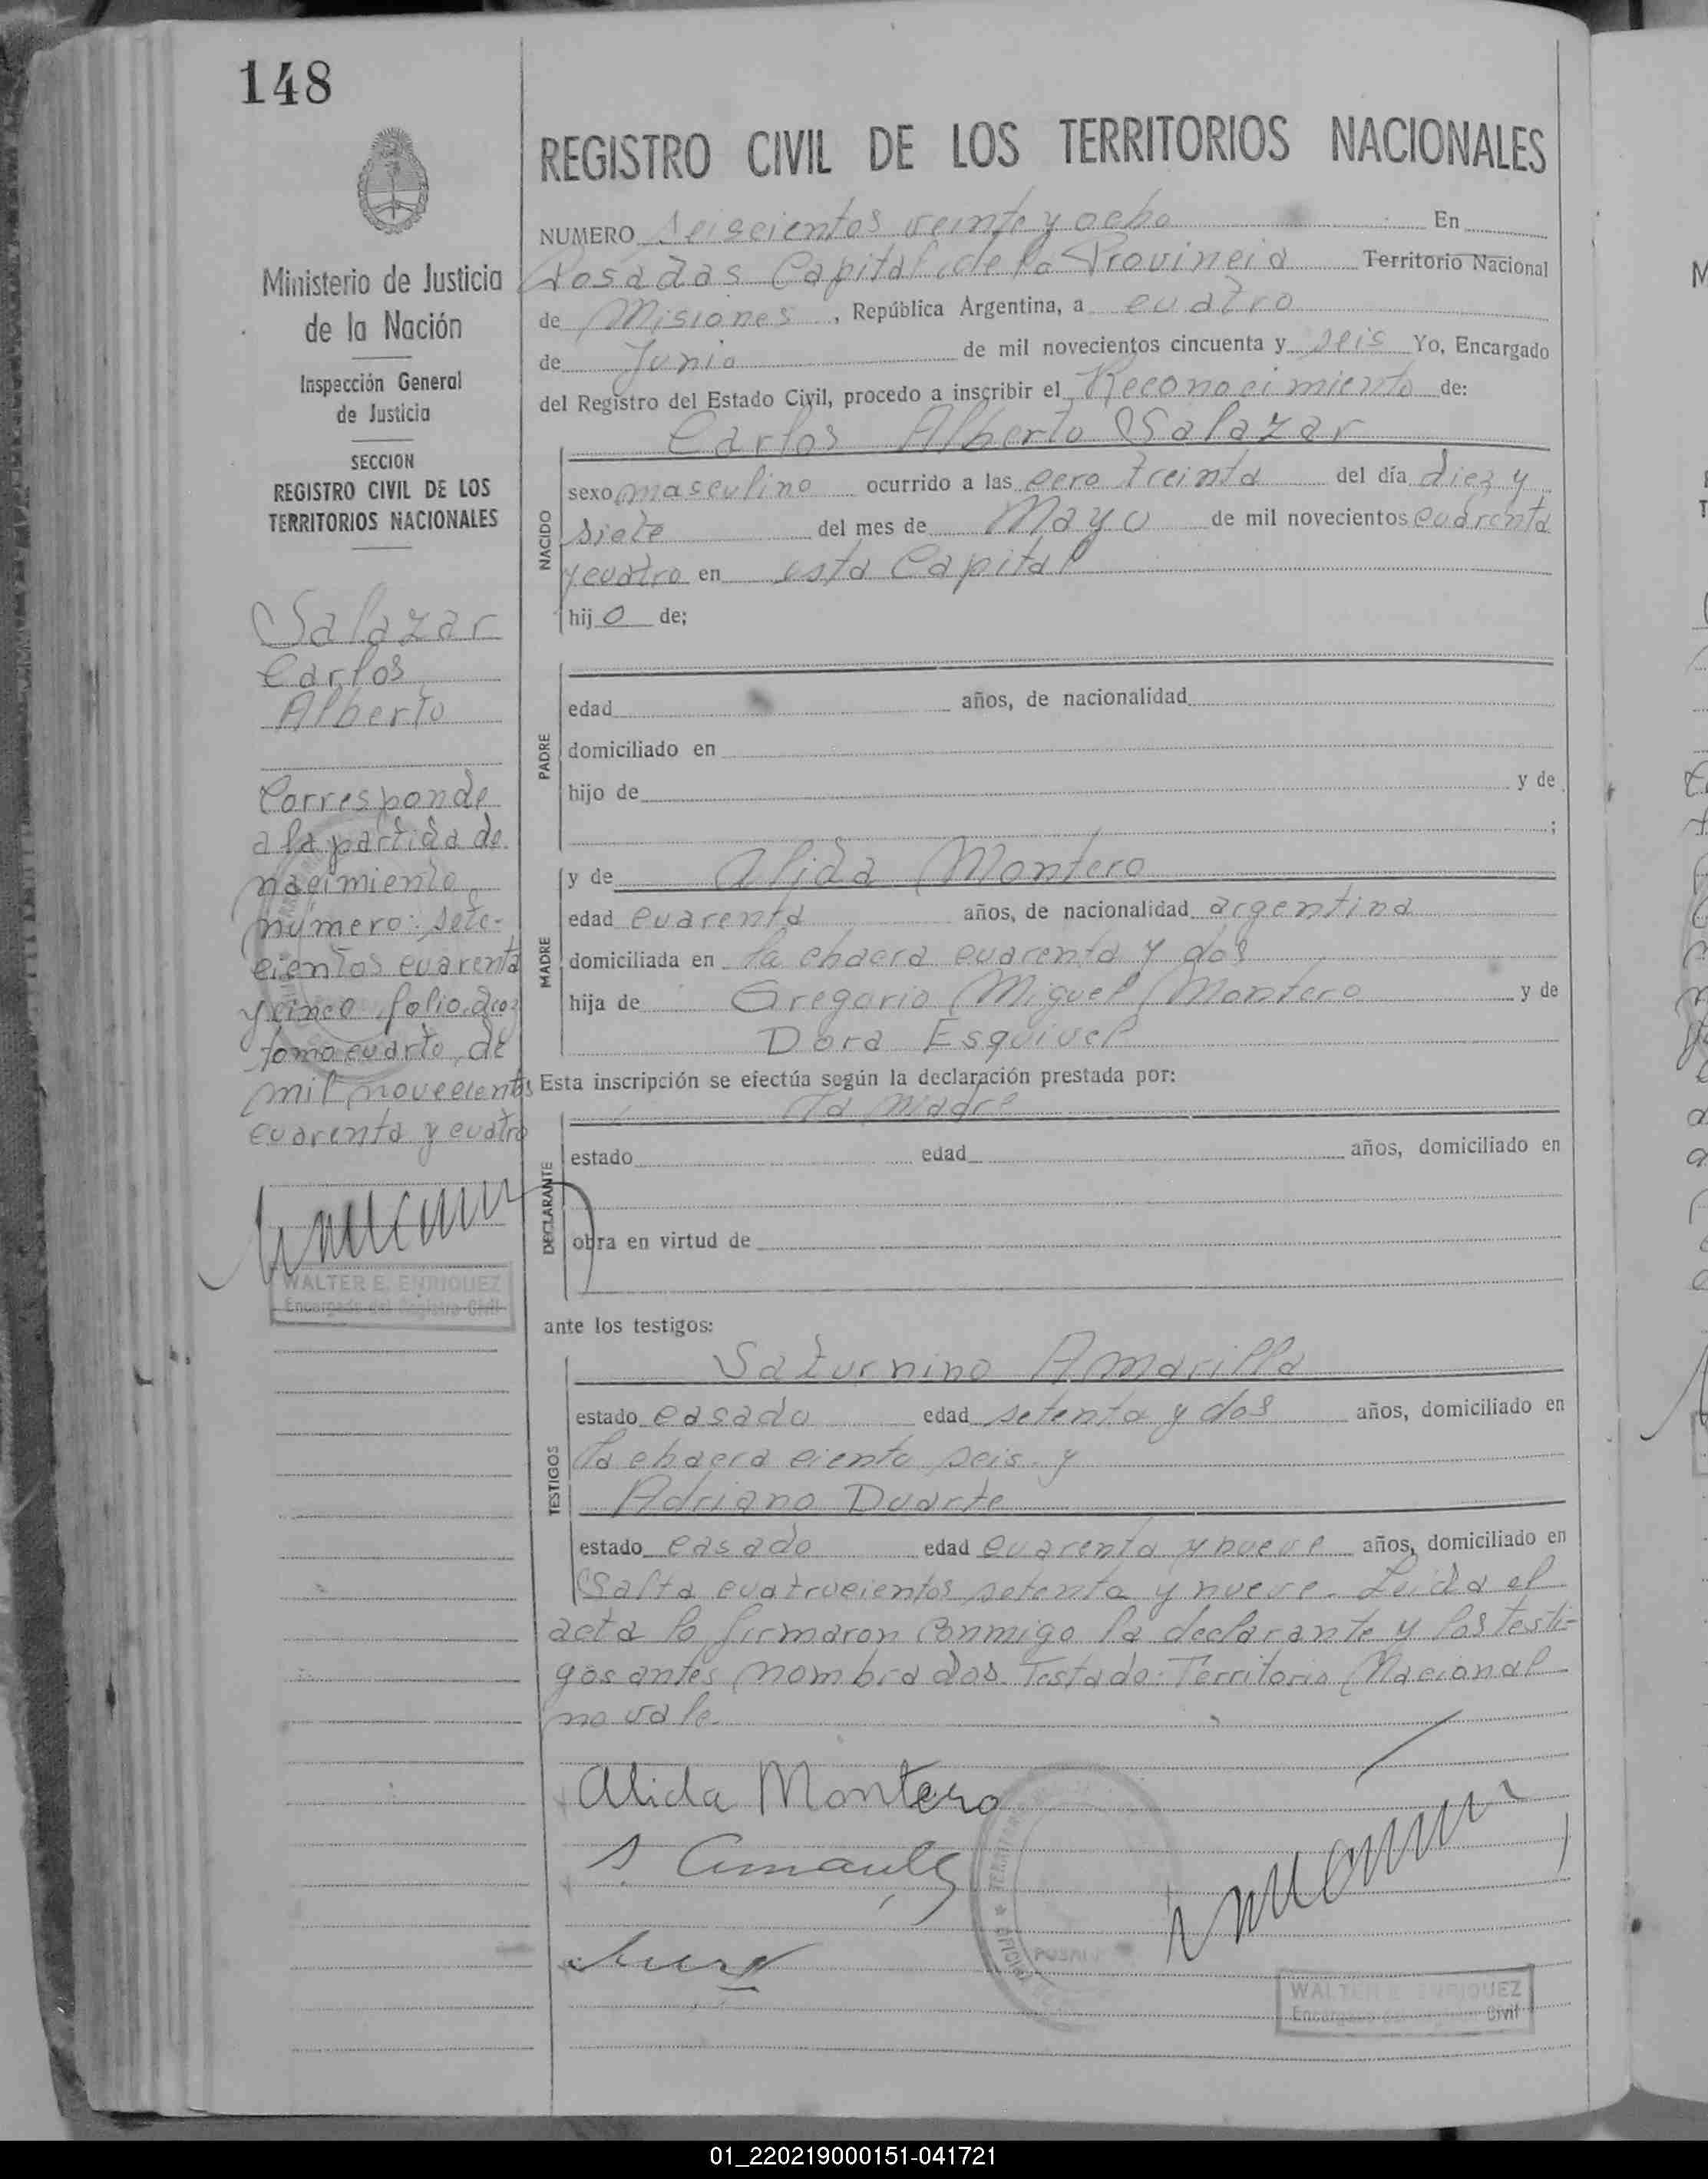 148
REGISTRO CIVIL DE LOS TERRITORIOS NACIONALES
Ministerio de Justicia
de la Nación
Inspección General
de Justicia
SECCION
REGISTRO CIVIL DE LOS
TERRITORIOS NACIONALES
Salazar
Carlos
Alberto
Corresponde
a la partida de
nacimiento
número: sete-
cientos cuarenta
y cinco folio
tomo cuarto, de
mil novecientos
cuarenta y cuatro
WALTER E. ENRIQUEZ
Encargado del Registro Civil
NUMERO Seiscientos veinte y ocho En
Posadas Capital de la Provincia Territorio Nacional
de Misiones, República Argentina, a cuatro
de Junio de mil novecientos cincuenta y seis Yo, Encargado
del Registro del Estado Civil, procedo a inscribir el Reconocimiento de:
Carlos Alberto Salazar
NACIDO
sexo masculino ocurrido a las cero treinta del día diez y
siete del mes de Mayo de mil novecientos cuarenta
y cuatro en esta Capital
hijo de;
PADRE
edad años, de nacionalidad
domiciliado en
hijo de y de
;
MADRE
y de Alida Montero
edad cuarenta años, de nacionalidad argentina
domiciliada en la chacra cuarenta y dos
hija de Gregorio Miguel Montero y de
Dora Esquivel
Esta inscripción se efectúa según la declaración prestada por:
la madre
DECLARANTE
estado edad años, domiciliado en
obra en virtud de
ante los testigos:
TESTIGOS
Saturnino Amarilla
estado casado edad setenta y dos años, domiciliado en
la chacra ciento seis y
Adriano Duarte
estado casado edad cuarenta y nueve años, domiciliado en
Salta cuatrocientos setenta y nueve. Leida el
acta la firmaron conmigo la declarante y los testi-
gos antes nombrados. Testado: Territorio Nacional
no vale.
Alida Montero
WALTER E. ENRIQUEZ
Civil
01_220219000151-041721